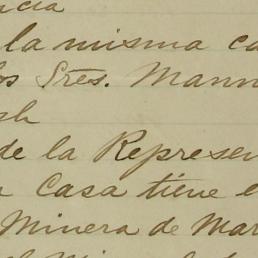 ncia
la misma ca
los Sres. Mann
sh
de la Represen
a Casa tiene e
Minera de Mar